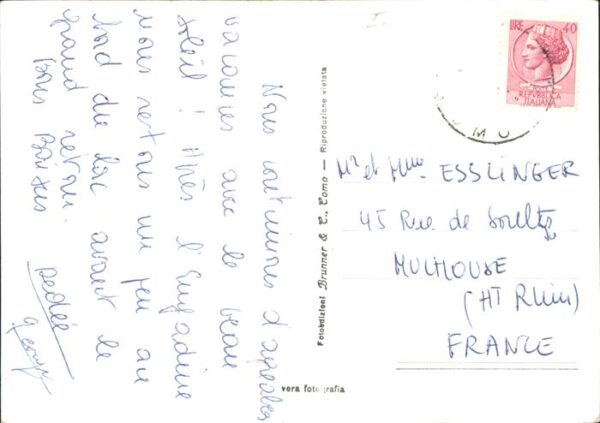 Nous continuons d'agréables
vacances avec le beau
soleil ! Après l'Engadine
nous restons un peu au
bord du lac avant le
grand retour.
Bons Baisers
Dédée
Fotoedizioni Brunner & C., Como — Riproduzione vietata
vera fotografia
LIRE 40
REPVBBLICA
ITALIANA
Mr et Mme ESSLINGER
45 Rue de Soultz
MULHOUSE
(HT Rhin)
FRANCE